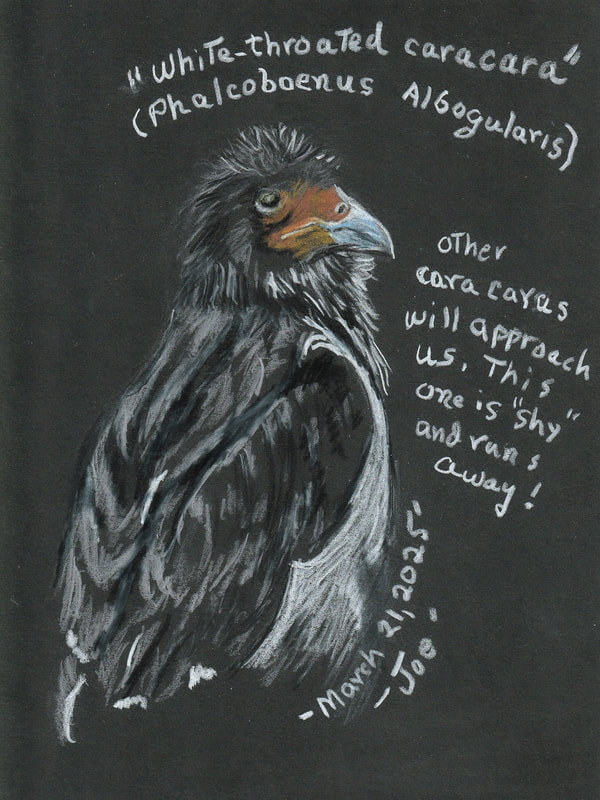 "White-throated caracara"
(Phalcoboenus Albogularis)
other
caracaras
will approach
us. This
one is "shy"
and runs
away!
- March 21, 2025 -
- Joe -